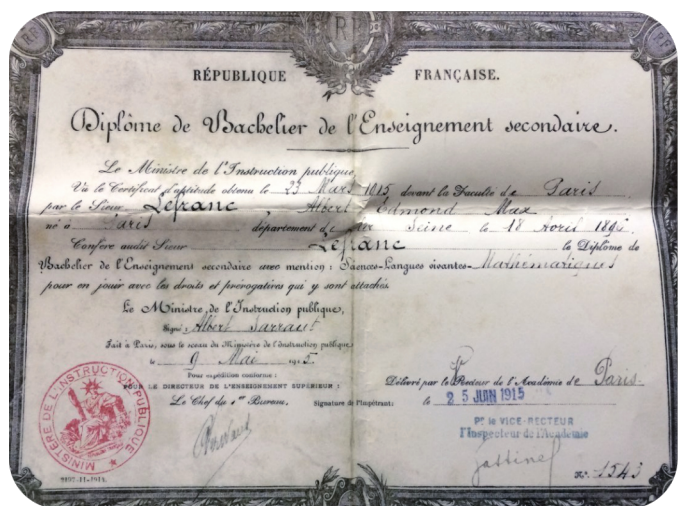 RP RP RP
RÉPUBLIQUE FRANÇAISE.
Diplôme de Bachelier de l'Enseignement secondaire.
Le Ministre de l'Instruction publique,
Vu le Certificat d'aptitude obtenu le 23 Mars 1915 devant la Faculté de Paris
par le Sieur Lefranc Albert Edmond Max
né à Paris département de la Seine le 18 Avril
Confère audit Sieur Lefranc le Diplôme de
Bachelier de l'Enseignement secondaire avec mention : Sciences-Langues vivantes-Mathématiques
pour en jouir avec les droits et prérogatives qui y sont attachés.
Le Ministre, de l'Instruction publique,
Signé : Albert Sarraut
Fait à Paris, sous le sceau du Ministère de l'Instruction publique
le 9 Mai 1915.
Pour expédition conforme :
POUR LE DIRECTEUR DE L'ENSEIGNEMENT SUPÉRIEUR :
Le Chef du 1er Bureau,
Signature de l'Impétrant :
Délivré par le Recteur de l'Académie de Paris
le 25 JUIN 1915
Pr le VICE-RECTEUR
l'Inspecteur de l'Académie
No. 1543
MINISTÈRE DE L'INSTRUCTION PUBLIQUE